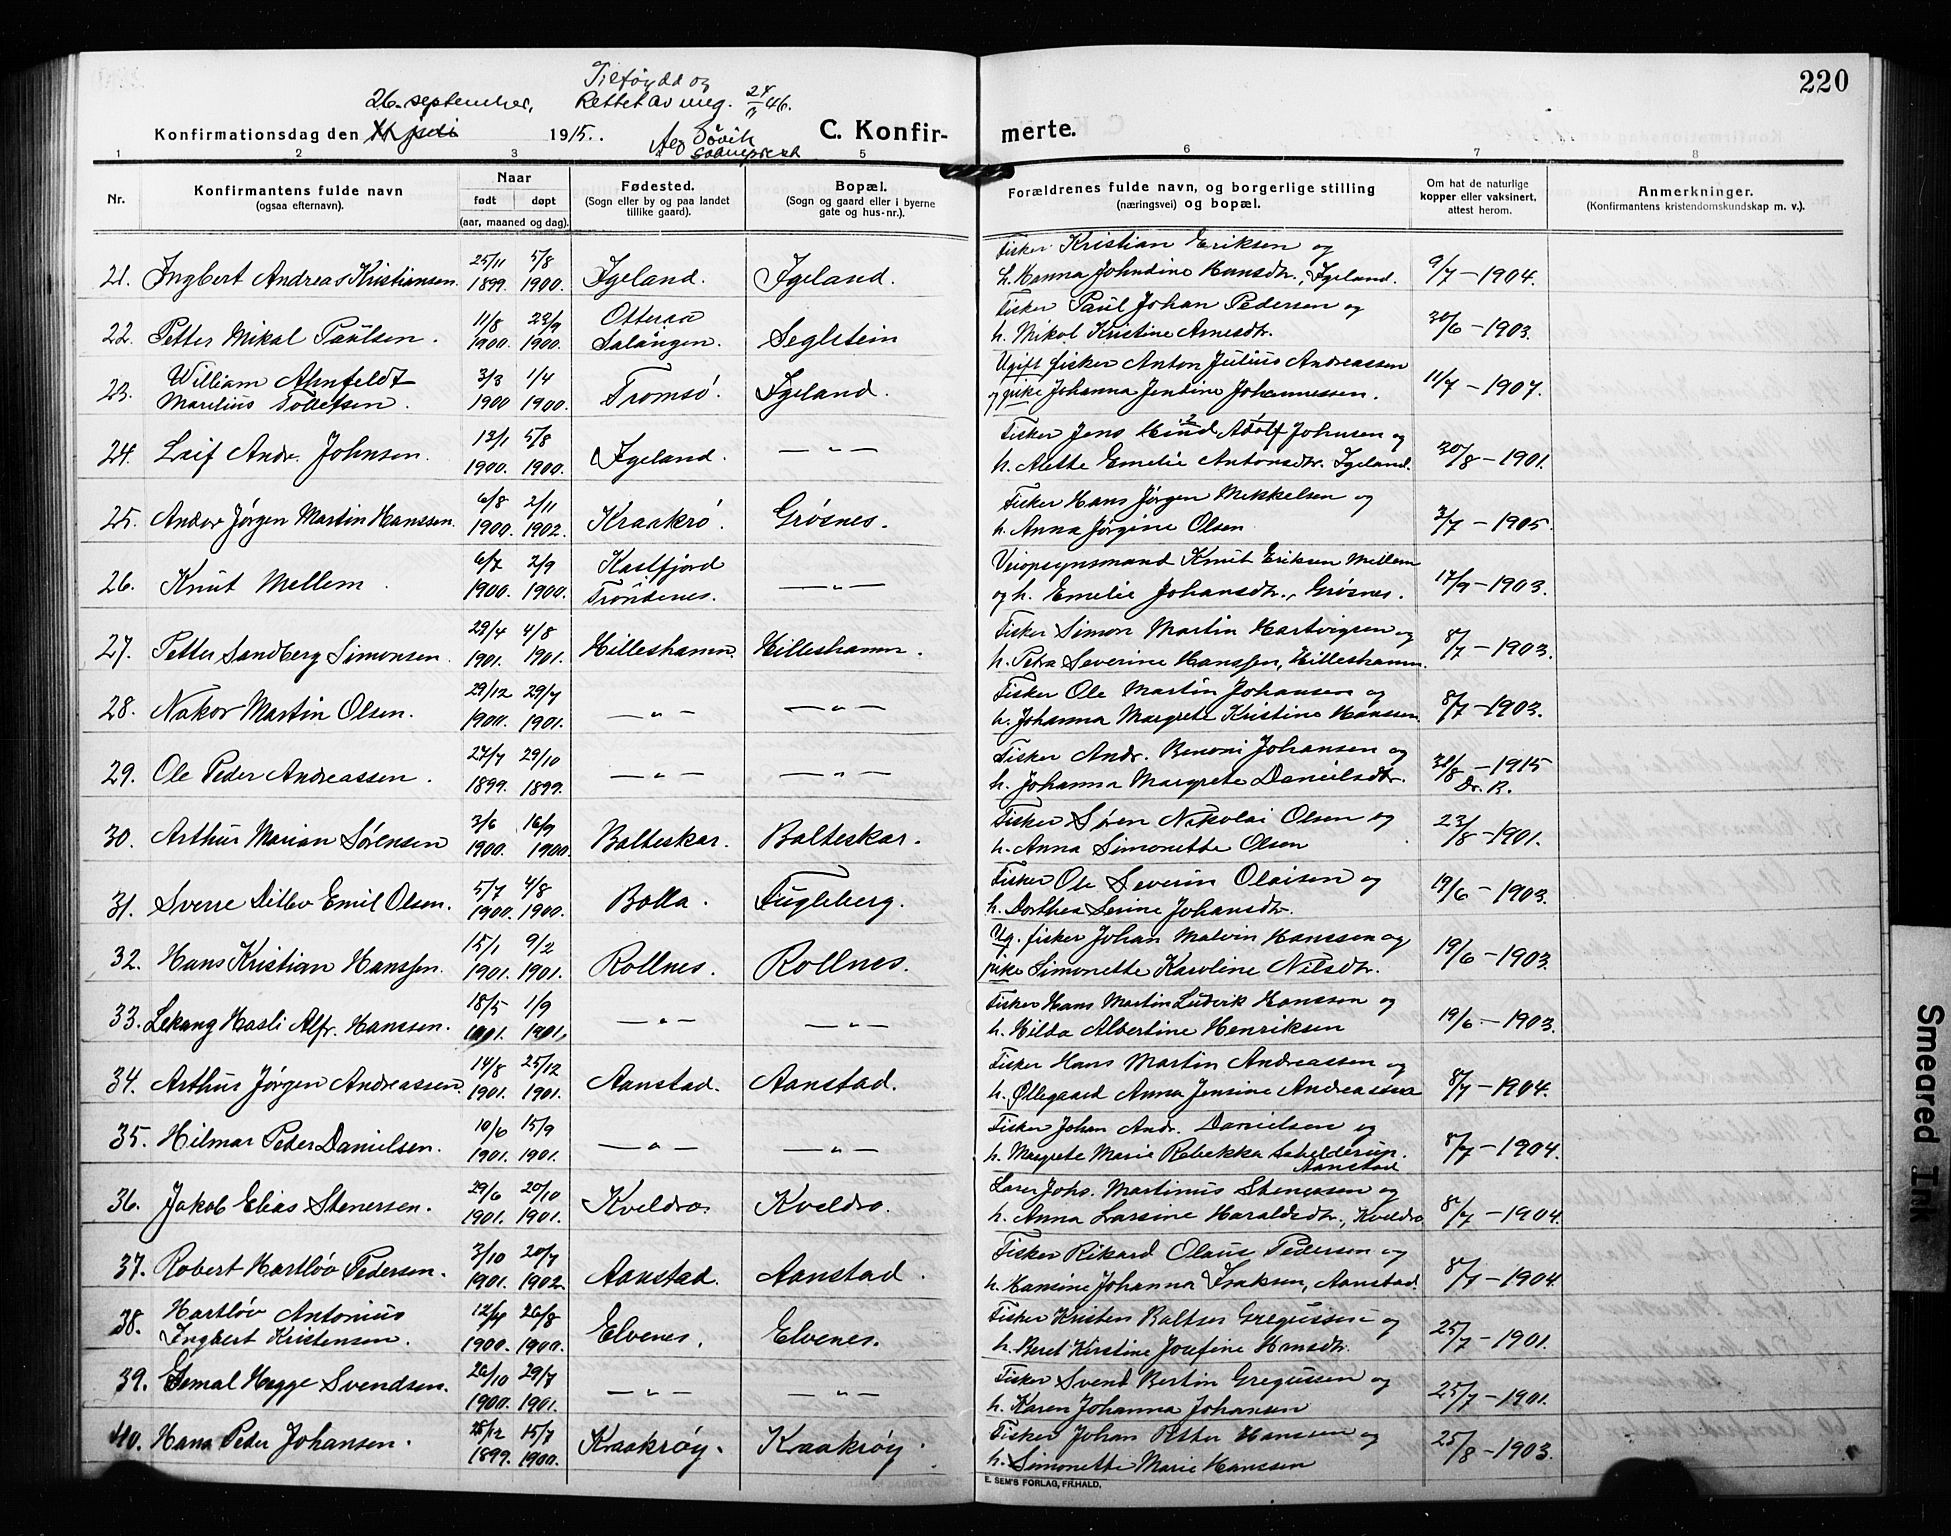 220
Tilføydd og
26. september, Rettet av meg. 24/9 46.
Konfirmationsdag den 1915. C. Konfirmerte.
Søvik
Sokneprest
1 2 3 4 5 6 7 8
Nr. Konfirmantens fulde navn (ogsaa efternavn). Naar født døpt (aar, maaned og dag). Fødested. (Sogn eller by og paa landet tillike gaard). Bopæl. (Sogn og gaard eller i byerne gate og hus-nr.). Forældrenes fulde navn, og borgerlige stilling (næringsvei) og bopæl. Om hat de naturlige kopper eller vaksinert, attest herom. Anmerkninger. (Konfirmantens kristendomskundskap m. v.).
21. Ingbert Andreas Kristiansen. 25/11 1899. 5/8 1900. Igeland. Igeland. Fisker Kristian Eriksen og
h. Hanna Johndine Hansdtr., Igeland. 9/7 – 1904.
22. Petter Mikal Paulsen. 11/8 1900. 23/9 1900. Otteraa Salangen. Seglstein Fisker Paul Johan Pedersen og
h. Mikol Kristine Arnesdtr. 30/6 – 1903.
23. William Ahnfeldt Marelius Tollefsen. 3/3 1900 1/4 1900. Tromsø. Igeland. Ugift fisker Anton Julius Andreassen
og pike Johanna Jentine Johannessen. 11/7 – 1907.
24. Leif Andr. Johnsen. 13/1 1900. 5/8 1900. Igeland. — " — Fisker Jens Adolf Johnsen og
h. Alette Emelie Antonsdtr. Igeland. 30/8 – 1901.
25. Andor Jørgen Martin Hanssen. 6/8 1900. 2/11 1902. Kraakrø. Grøsnes. Fisker Hans Jørgen Mikkelsen og
h. Anna Jørgine Olsen 3/7 – 1905.
26. Knut Mellem. 6/7 1900. 2/9 1900. Kastfjord Trondenes. — " — Veiopsynsmand Knut Eriksen Mellem
og h. Emelie Johansdtr., Grøsnes. 17/9 – 1903.
27. Petter Sandberg Simonsen. 29/4 1901. 4/8 1901. Hilleshamn. Hilleshamn. Fisker Simon Martin Hartvigsen og
h. Petra Severine Hanssen, Hilleshamn. 8/7 – 1903.
28. Nakor Martin Olsen. 29/12 1900. 29/7 1901. — " — — " — Fisker Ole Martin Johansen og
h. Johanna Margrete Kristine Hanssen 8/7 – 1903.
29. Ole Peder Andreassen. 27/7 1899. 29/10 1899. — " — — " — Fisker Andr. Benoni Johansen og
h. Johanna Margrete Danielsdtr. 31/8 – 1915 Dr. R.
30. Arthur Marian Sørensen 3/6 1900. 16/9 1900. Balteskar. Balteskar. Fisker Søren Nikolai Olsen og
h. Anna Simonette Olsen 23/8 – 1901.
31. Sverre Ditlev Emil Olsen. 5/7 1900. 4/8 1900. Bolla. Fugleberg. Fisker Ole Severin Olaisen og
h. Dorthea Serine Johansdtr. 19/6 – 1903.
32. Hans Kristian Hanssen. 15/1 1901. 9/2 1901. Rollnes. Rollnes. Ug. fisker Johan Malvin Hanssen og
pike Simonette Karoline Nilsdtr. 19/6 – 1903.
33. Lekang Hasli Alfr. Hanssen. 18/5 1901. 1/9 1901. — " — — " — Fisker Hans Martin Ludvik Hanssen og
h. Hilda Albertine Henriksen 19/6 – 1903.
34. Arthur Jørgen Andreassen 14/8 1901. 25/12 1901. Aanstad. Aanstad. Fisker Hans Martin Andreassen og
h. Øllegaard Anna Jensine Andreassen 8/7 – 1904.
35. Hilmar Peder Danielsen. 10/6 1901. 15/9 1901. — " — — " — Fisker Johan Andr. Danielsen og
h. Margrete Marie Rebekka Schelderup. Aanstad 8/7 – 1904.
36. Jakob Elias Stenersen. 29/6 1901. 20/10 1901. Kveldro. Kveldro. Lærer Johs. Martinus Stenersen og
h. Anna Lassine Haraldsdtr., Kveldro 8/7 – 1904.
37. Robert Hartløv Pedersen. 3/10 1901. 20/7 1902. Aanstad. Aanstad. Fisker Rikard Olaus Pedersen og
h. Hansine Johanna Isaksen, Aanstad. 8/7 – 1904.
38. Hartløv Antonius Ingbert Kristensen. 12/4 1900. 26/8 1900. Elvenes. Elvenes. Fisker Kristen Baltser Gregussen og
h. Beret Kirstine Josefine Hansdtr. 25/7 – 1901.
39. Esmal Hegge Svendsen. 26/10 1900. 29/7 1901. — " — — " — Fisker Svend Bertin Gregussen og
h. Karen Johanna Johansen 25/7 – 1901.
40. Hans Peder Johansen. 28/12 1899. 15/7 1900. Kraakrøy. Kraakrøy. Fisker Johan Peter Hanssen og
h. Simonette Marie Hanssen 25/8 – 1903.
E. SEM'S FORLAG, FR.HALD.
Smeared Ink